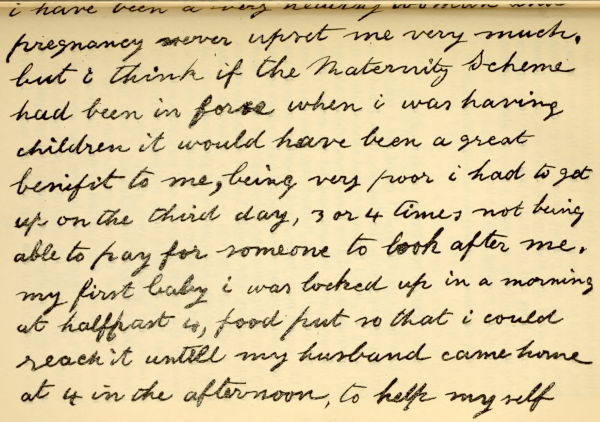 i have been a very healthy woman and
pregnancy never upset me very much.
but i think if the Maternity Scheme
had been in forse when i was having
children it would have been a great
benifit to me, being very poor i had to get
up on the third day, 3 or 4 times not being
able to pay for someone to look after me.
my first baby i was locked up in a morning
at halfpast 4, food put so that i could
reach it untill my husband came home
at 4 in the afternoon, to help my self